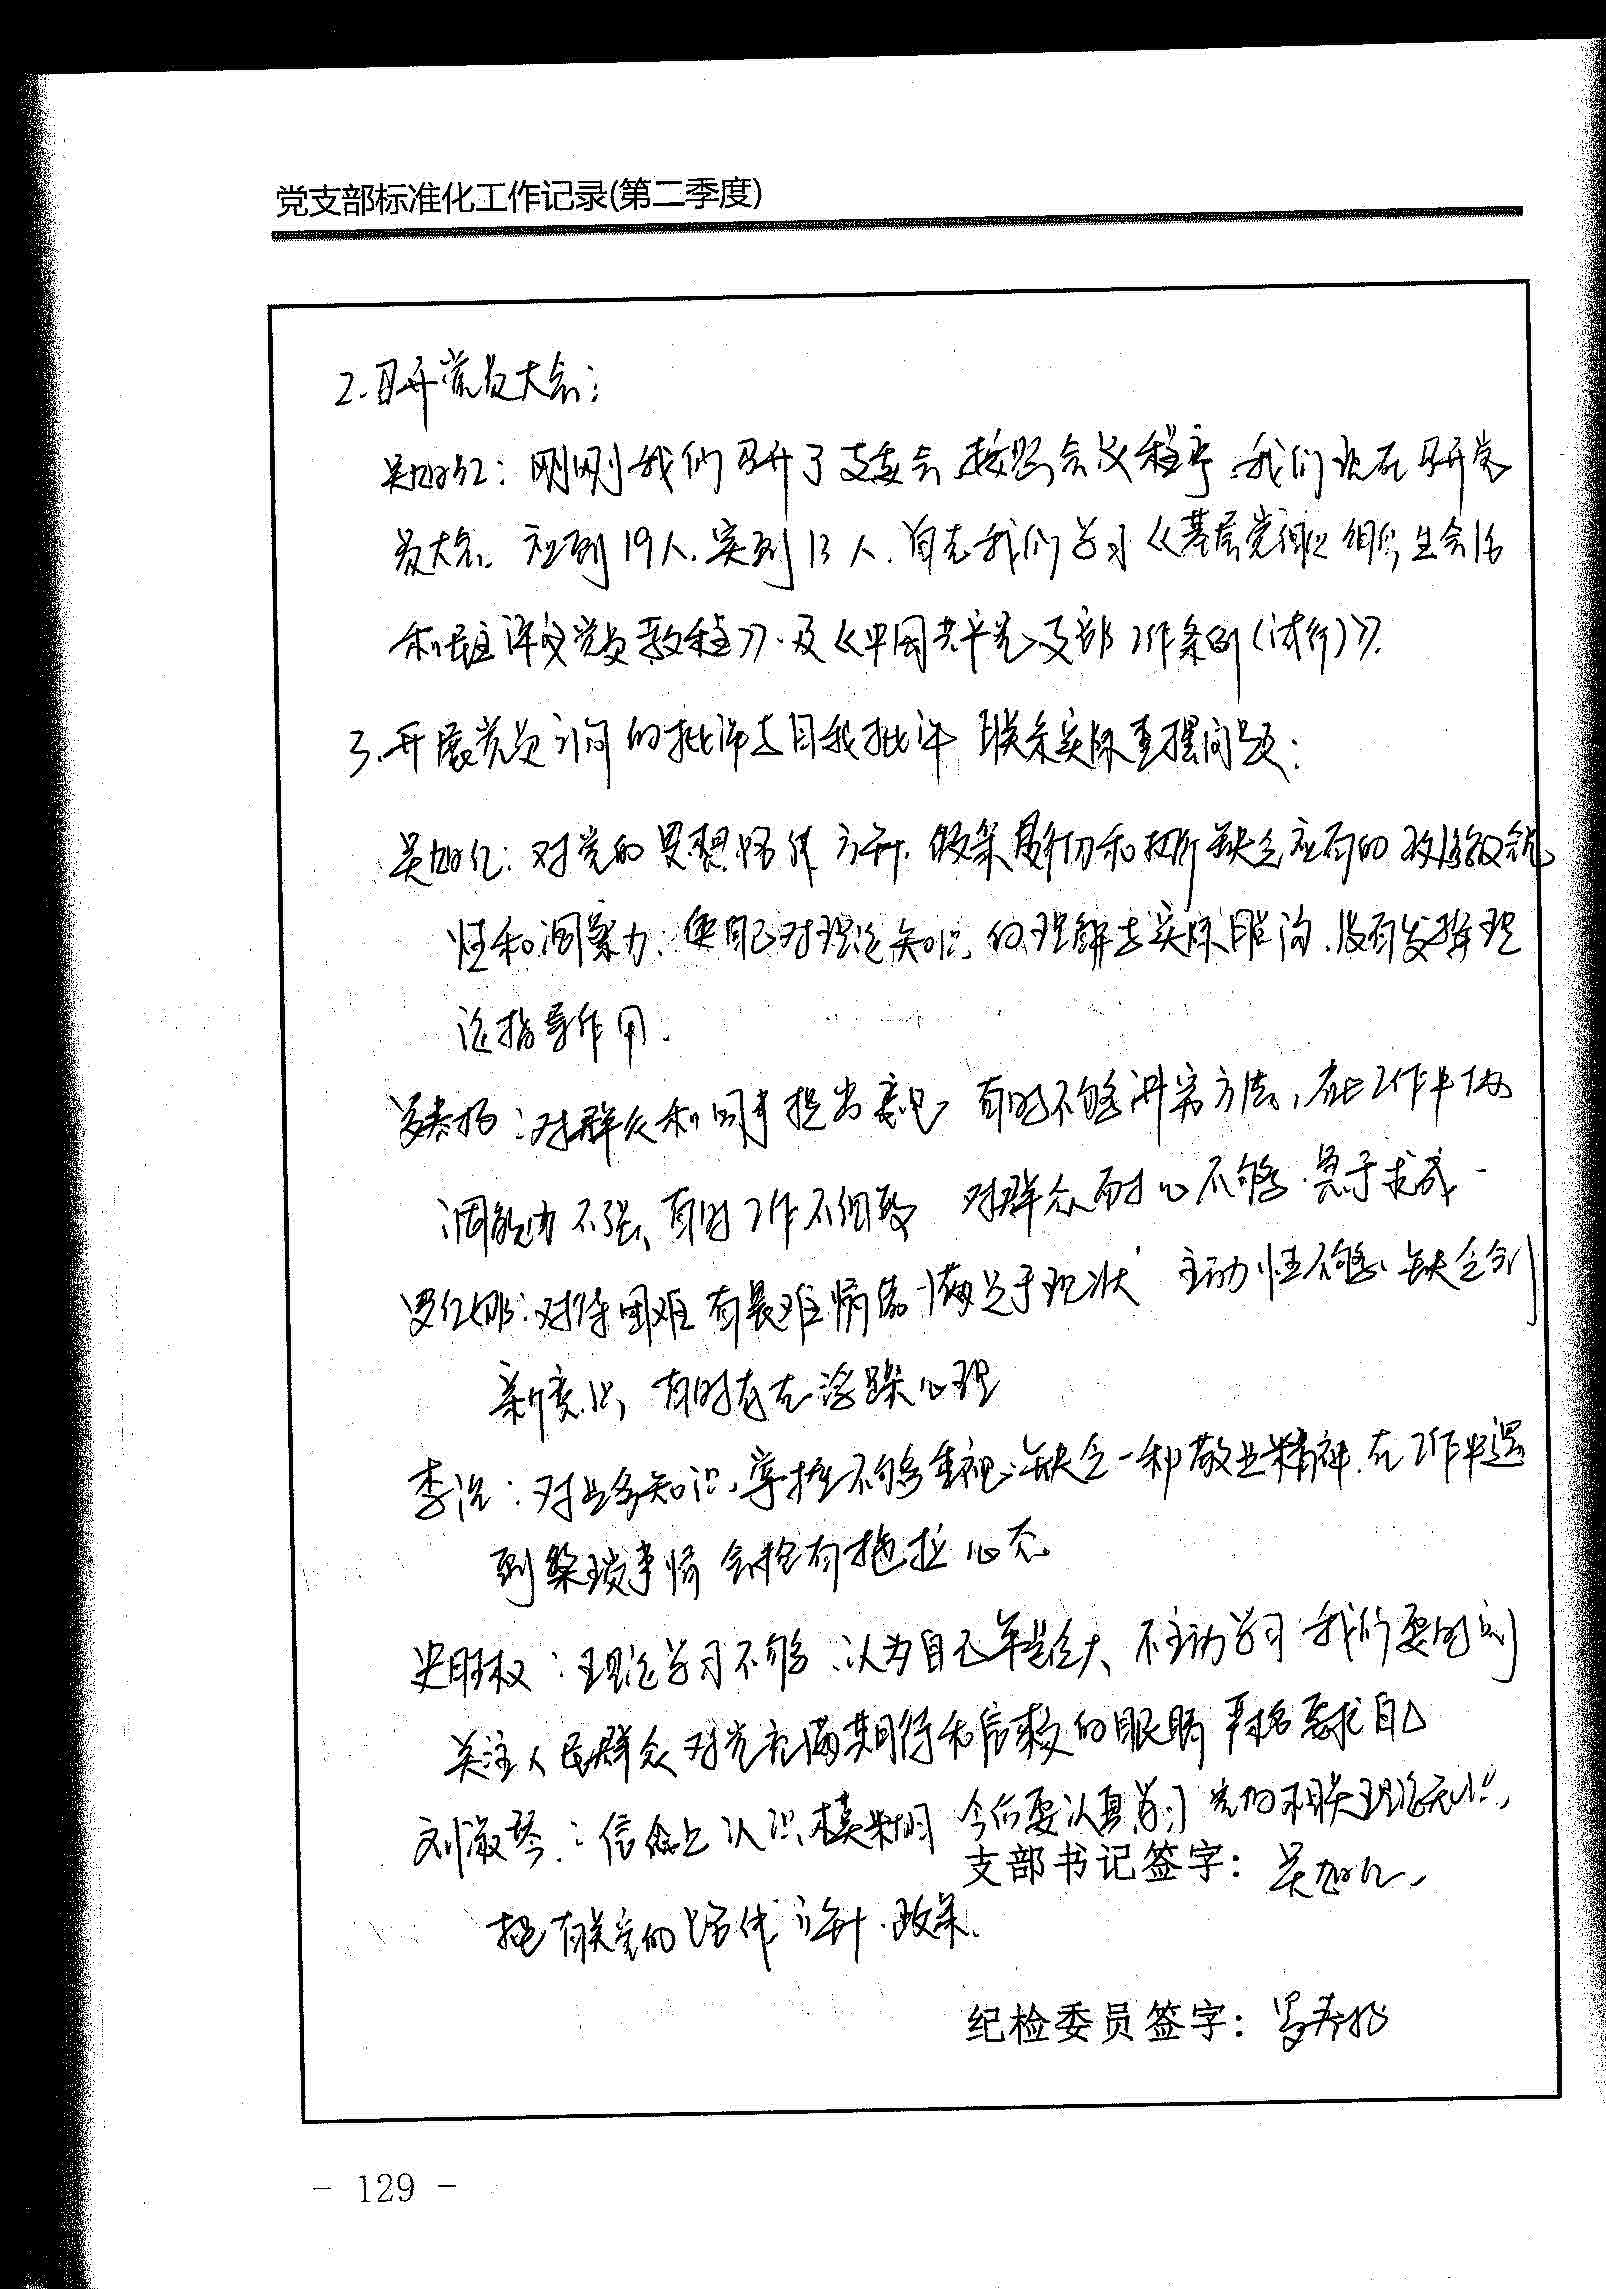 党支部标准化工作记录(第二季度)
2.召开党员大会：
吴加红：刚刚我们召开了支委会,按照会议程序,我们现在召开党
员大会。应到19人.实到13人.首先我们学习《基层党组织组织生会活
和民主评议党员教程》.及《中国共产党支部工作条例(试行)》.
3.开展党员之间的批评与自我批评 联系实际查摆问题：
吴加红：对党的思想路线 方针.政策 和 缺乏应有的政治敏锐
性和洞察力.使自己对理论知识的理解与实际脱沟.没有发挥理
论指导作用.
罗春扬：对群众和同事提出意见 有时不够讲究方法,在工作中协
调能力不强、有时工作不细致 对群众耐心不够.急于求成.
罗红娜：对待困难有畏难情绪 满足于现状 主动性不够、缺乏创
新意识,有时存在浮躁心理
李浩：对业务知识,掌握不够重视.缺乏一种敬业精神.在工作中遇
到繁琐事情会抱有拖拉心态
史旺权：理论学习不够.认为自己年龄大、不主动学习 我们要时刻
关注人民群众对党充满期待和信赖的眼睛 严格要求自己
刘淑琴：信念上认识模糊 今后要认真学习党的相关理论知识,
支部书记签字：吴加红
把有关党的路线 方针.政策.
纪检委员签字：罗春扬
- 129 -